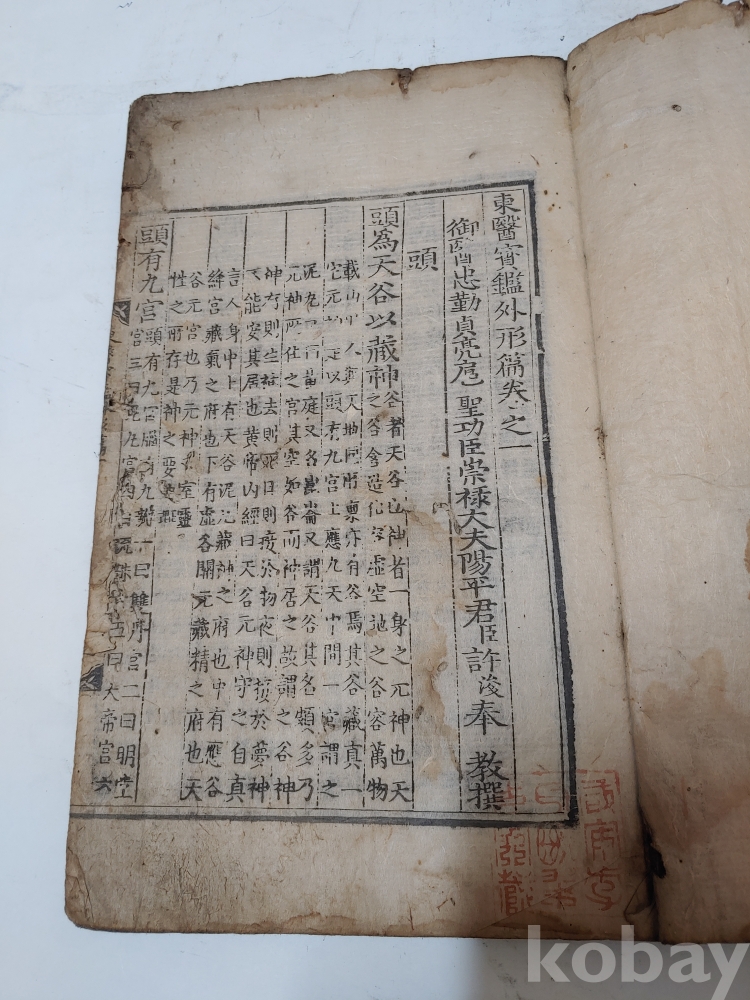 東醫寶鑑外形篇卷之一
御醫忠勤貞亮扈 聖功臣崇祿大夫陽平君臣許浚奉 教撰
頭
頭為天谷以藏神
谷者天谷也神者一身之元神也天
之谷含造化容虛空地之谷容萬物
載山川人與天地同所稟亦有谷焉其谷藏真一
宅元神是以頭有九宮上應九天中間一宮謂之
泥丸又曰黃庭又名崑崙又謂天谷其名頗多乃
元神所住之宮其空如谷而神居之故謂之谷神
神存則生神去則死日則接於物夜則接於夢神
不能安其居也黃帝內經曰天谷元神守之自真
言人身中上有天谷泥丸藏神之府也中有應谷
絳宮藏氣之府也下有虛谷關元藏精之府也天
谷元宮也乃元神之室靈
性之所存是神之要
頭有九宮
頭有九宮腦有九瓣一曰雙丹宮二曰明堂
宮三曰泥丸宮四曰流珠宮五曰大帝宮六
kobay